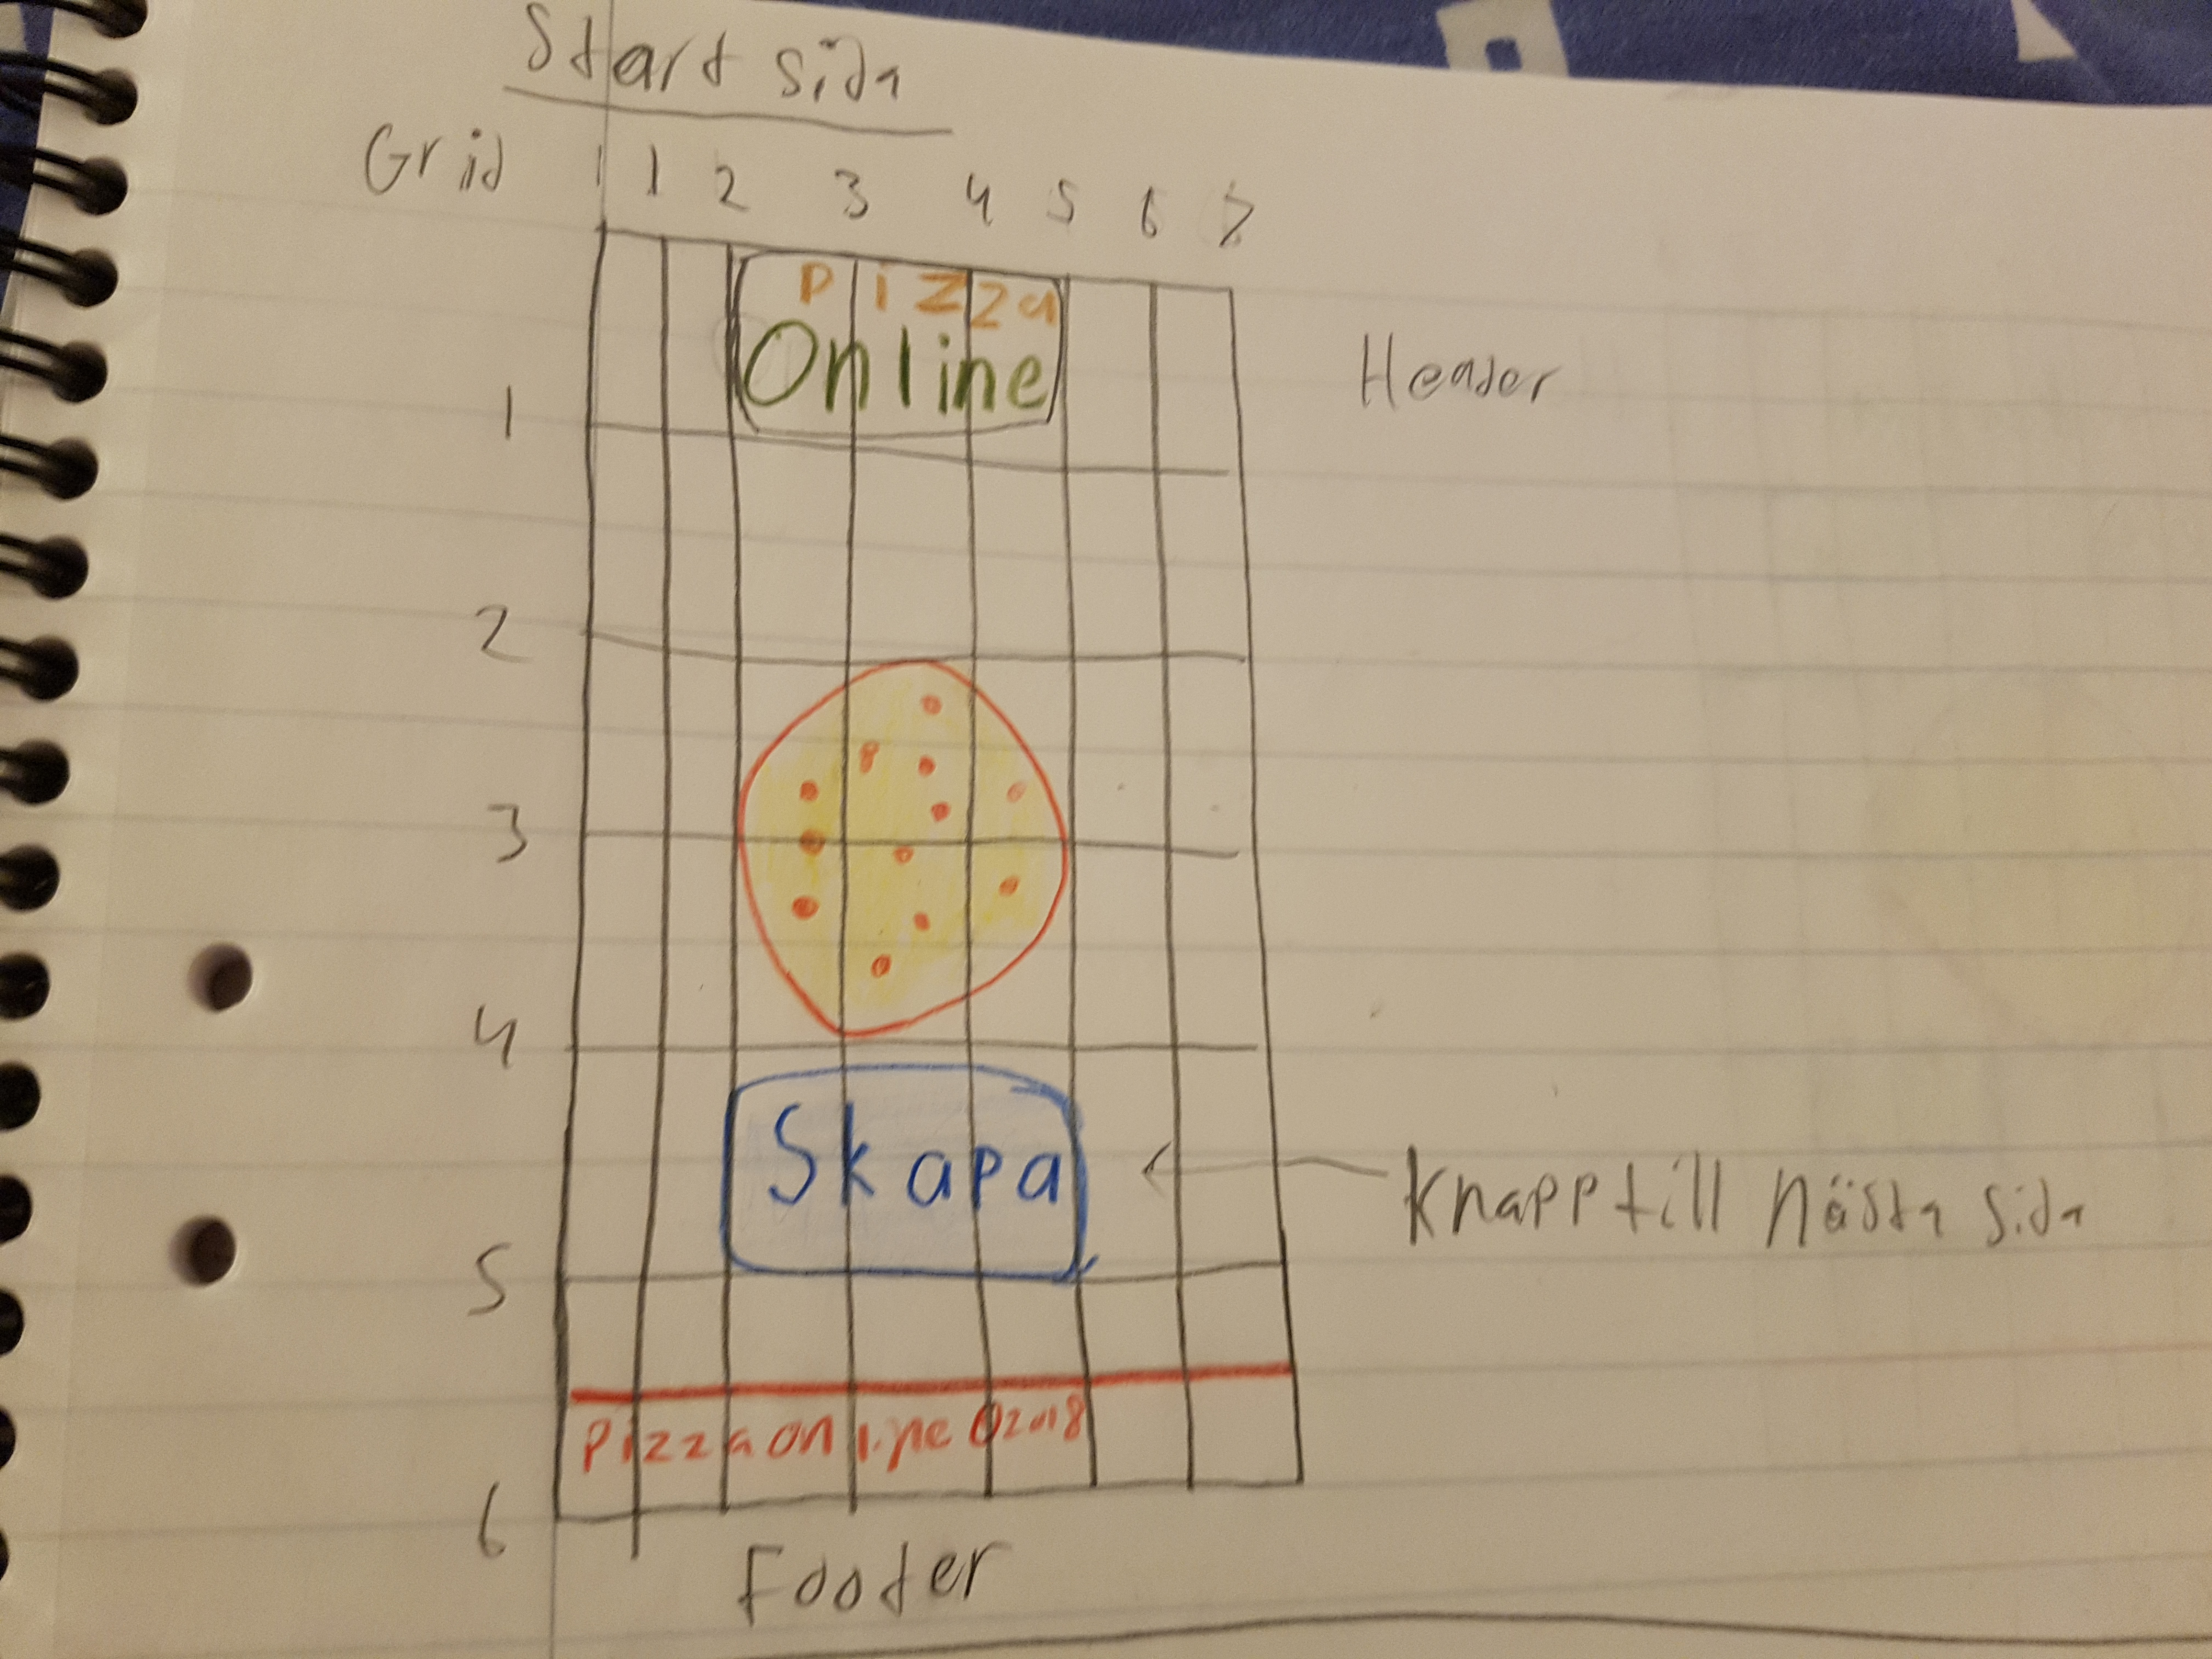 Start Sida
Grid 1 1 2 3 4 5 6 7
Pizza
Online
Header
1
2
3
4
Skapa
Knapp till Nästa Sida
5
Pizzaonline©2018
6
Footer